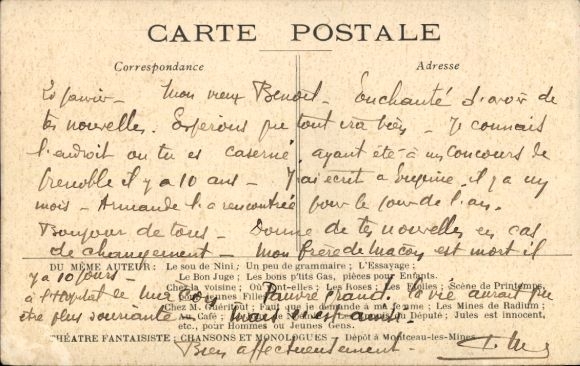 CARTE POSTALE
Correspondance
Adresse
20 janvier - Mon vieux Benoit - Enchanté d'avoir de
tes nouvelles. Espérons que tout ira bien - Je connais
l'endroit ou tu es caserné, ayant été à un Concours de
Grenoble il y a 10 ans - J'ai écrit a il y a un
mois - Armande l'a rencontrée pour le jour de l'an.
Bonjour de tous - Donne de tes nouvelles en cas
de changement - Mon frère de Macon est mort il
DU MÊME AUTEUR : Le sou de Nini ; Un peu de grammaire ; L'Essayage ;
Le Bon Juge ; Les bons p'tits Gas, pièces pour Enfants.
y a 10 jours -
Chez la voisine ; Où vont-elles ; Les Roses ; Les Etoiles ; Scène de Printemps,
à de Pauvre grand. la vie aurait pu
Jeunes Filles
Chez M. ; Faut que je demande à ma femme ; Les Mines de Radium ;
être plus souriante mais c'est ainsi.
Au Café ; du Député ; Jules est innocent,
etc., pour Hommes ou Jeunes Gens.
THÉÂTRE FANTAISISTE ; CHANSONS ET MONOLOGUES ; Dépôt à Montceau-les-Mines
Bien affectueusement -